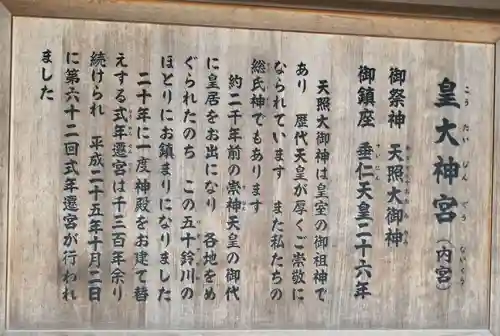 皇大神宮（内宮）
御祭神 天照大御神
御鎮座 垂仁天皇二十六年
天照大御神は皇室の御祖神で
あり 歴代天皇が厚くご崇敬に
なられています また私たちの
総氏神でもあります
約二千年前の崇神天皇の御代
に皇居をお出になり 各地をめ
ぐられたのち この五十鈴川の
ほとりにお鎮まりになりました
二十年に一度神殿をお建て替
えする式年遷宮は千三百年余り
続けられ 平成二十五年十月二日
に第六十二回式年遷宮が行われ
ました